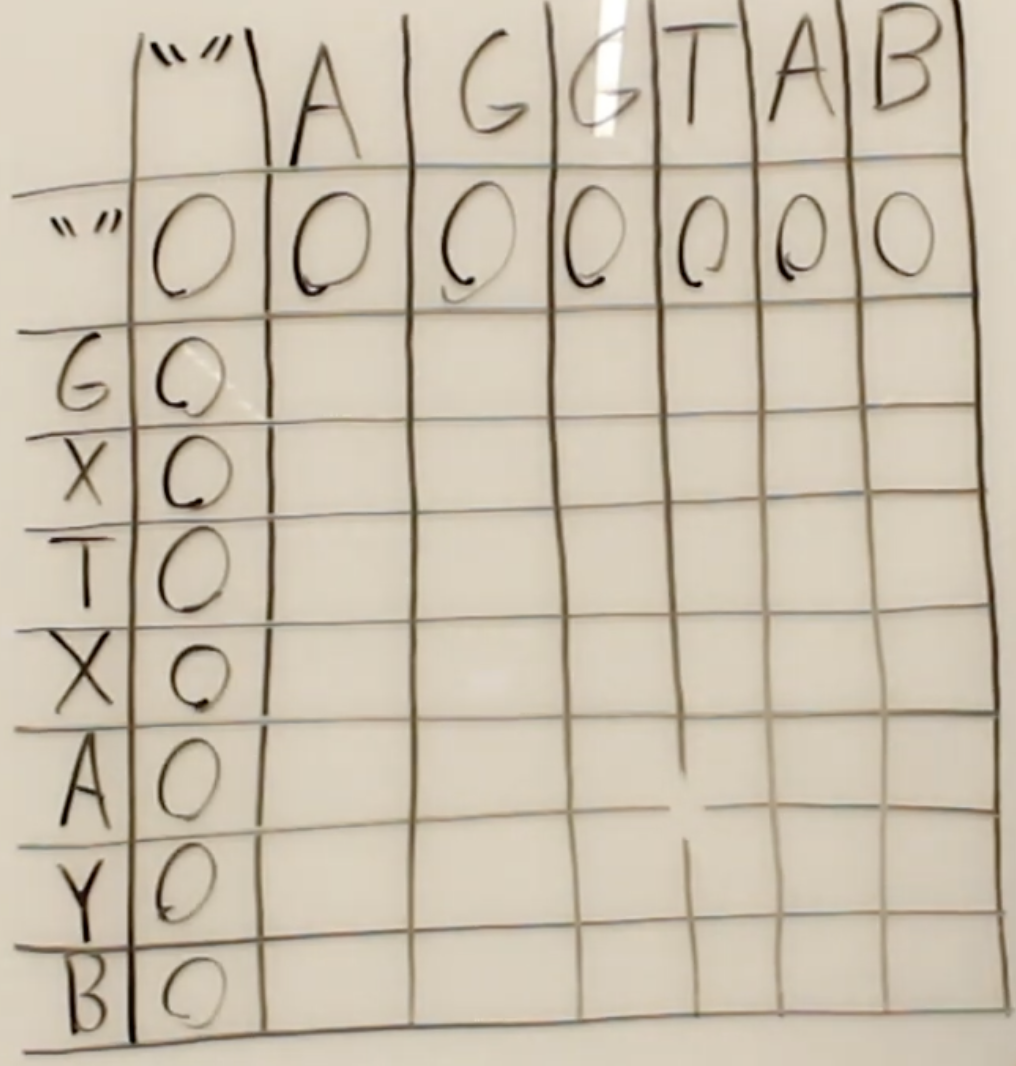 "" A G G T A B
"" 0 0 0 0 0 0 0
G 0
X 0
T 0
X 0
A 0
Y 0
B 0